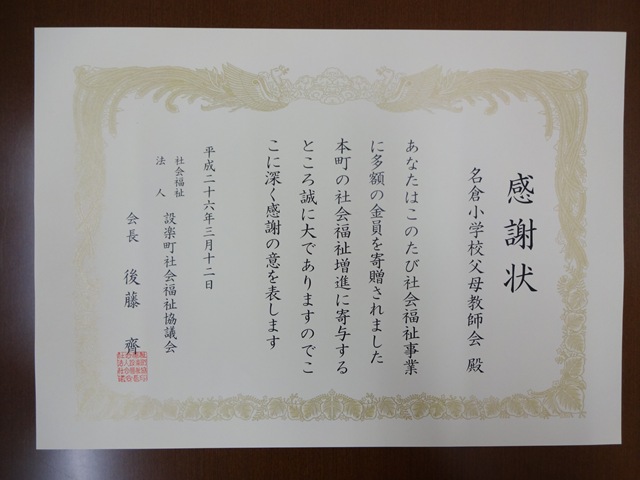 感謝状
名倉小学校父母教師会 殿
あなたはこのたび社会福祉事業
に多額の金員を寄贈されました
本町の社会福祉増進に寄与する
ところ誠に大でありますのでこ
こに深く感謝の意を表します
平成二十六年三月十二日
社会福祉
法人
設楽町社会福祉協議会
会長 後藤 齊